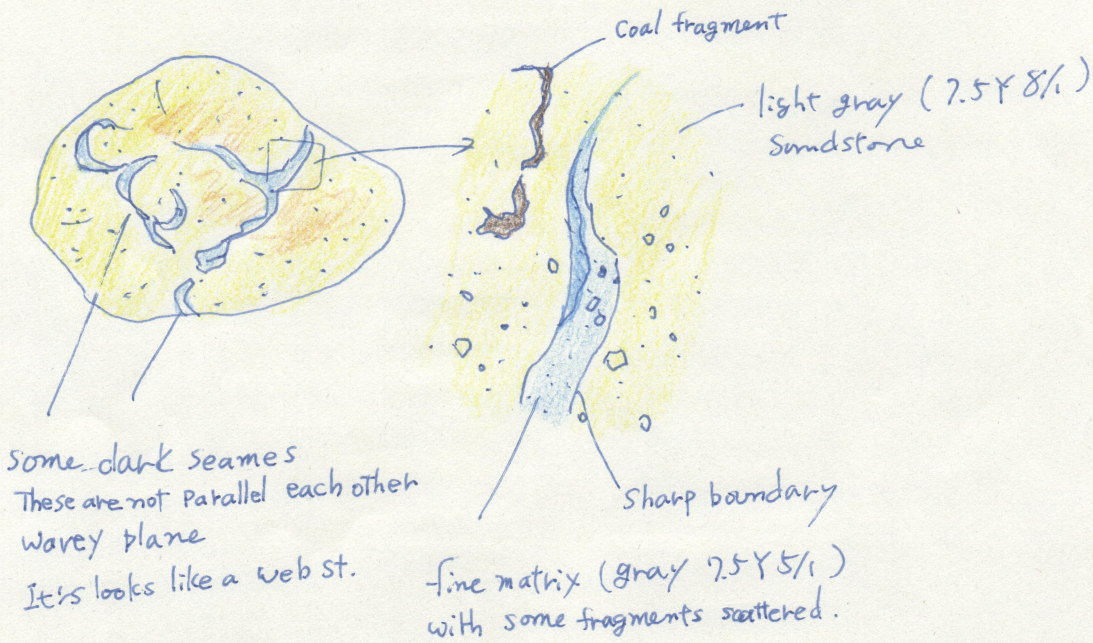 Coal fragment
light gray (7.5Y 8/1)
Sandstone
Some dark seames
These are not parallel each other
wavey plane
It's looks like a web st.
Sharp boundary
fine matrix (gray 7.5Y 5/1)
with some fragments scattered.